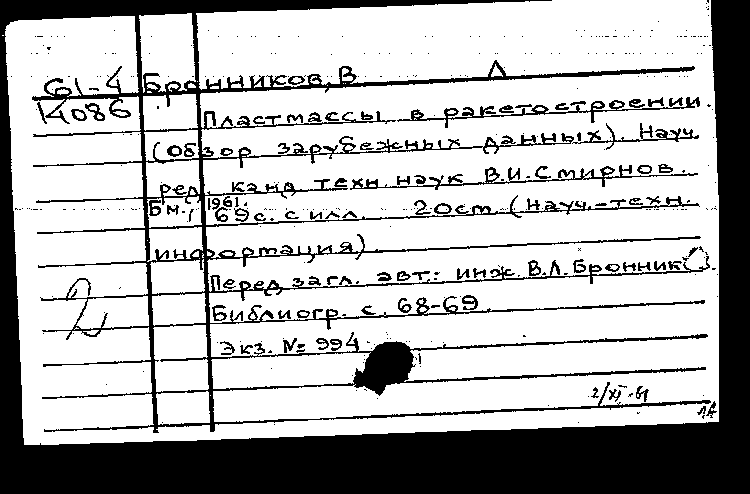 61-4 Бронников, В Л
14086
Пластмассы в ракетостроении.
(Обзор зарубежных данных). Науч.
ред. канд. техн. наук В.И. Смирнов.
Б.м., 1961.
69 с. с илл. 20 см (Науч.-техн.
информация)
Перед загл. авт.: инж. В.Л. Бронников.
2
Библиогр. с. 68-69.
Экз. № 994
2/XI-61
ЛА